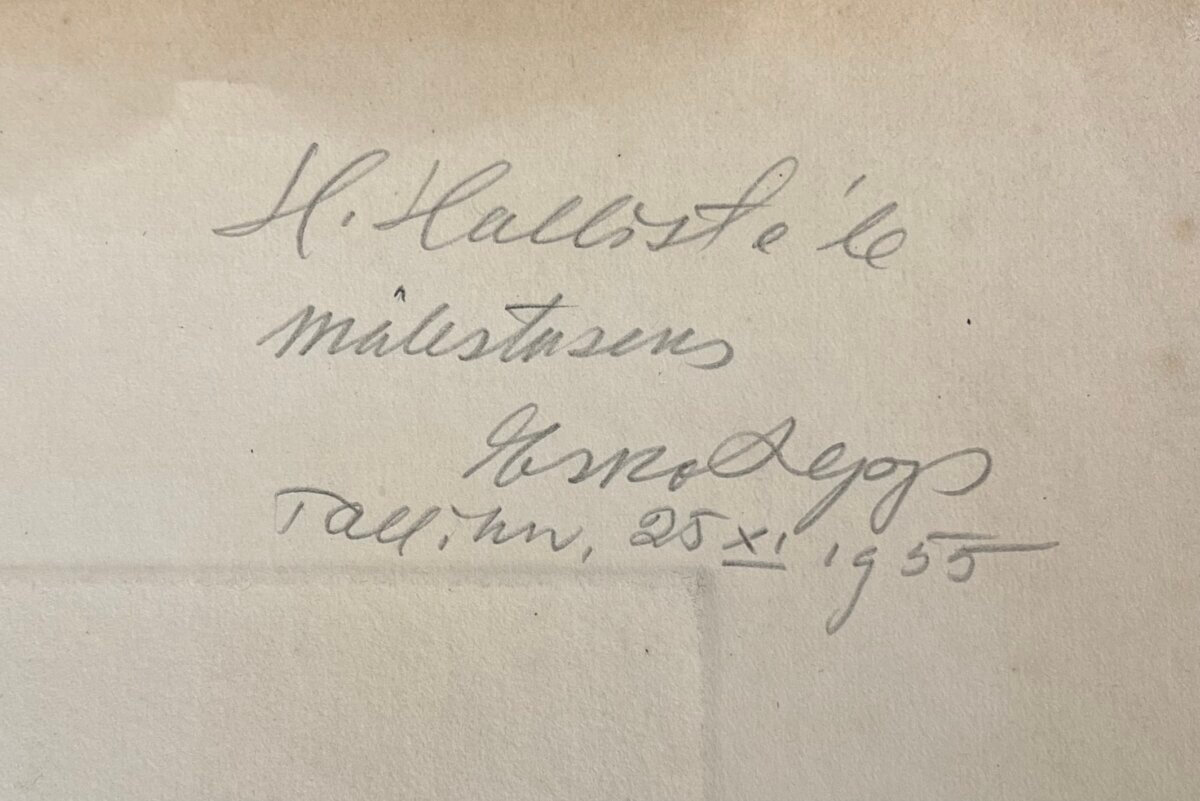 H. Halliste'le
mälestuseks
Esko Lepp
Tallinn, 25 XI 1955